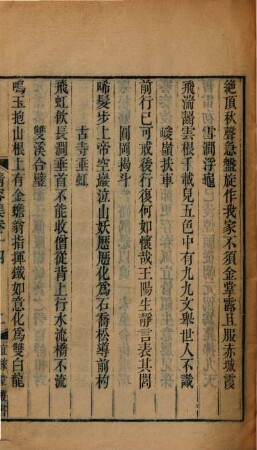 絶頂秋聲急盤旋作我家不須金掌露且服赤城霞
雪澗浮龜
飛湍齧雲根千載見五色中有九九文舉世人不識
峻嶺扶車
前行已可戒後行復何如懷哉王陽生靜言表其閭
圓岡揭斗
晞髮步上帝空巖泣山妖歷歷化爲石喬松導前杓
古寺垂虹
飛虹飲長澗垂首不能收僧從背上行水流橋不流
雙溪合璧
鳴玉抱山根上有金蟾翁指揮鐵如意化爲雙白龍
清容集卷十四